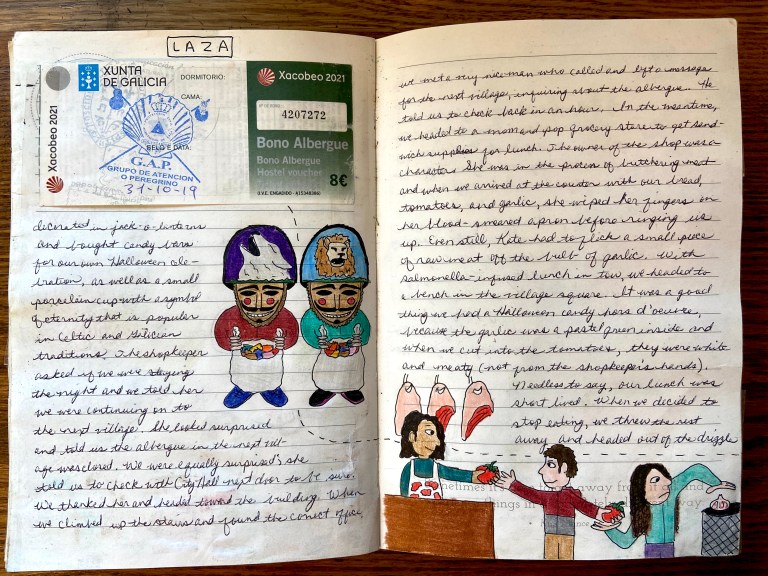 LAZA
XUNTA
DE GALICIA
DORMITORIO:
CAMA:
Xacobeo 2021
SELO E DATA:
G.A.P.
GRUPO DE ATENCION
O PEREGRINO
31-10-19
Xacobeo 2021
4207272
Bono Albergue
Bono Albergue
Hostel voucher
8€
decorated in jack-o-lanterns
and bought candy bars
for our own Halloween cele-
bration, as well as a small
porcelain cup with a symbol
of eternity that is popular
in Celtic and Galician
traditions. The shopkeeper
asked if we were staying
the night and we told her
we were continuing on to
the next village. She looked surprised
and told us the albergue in the next vill-
age was closed. We were equally surprised & she
told us to check with City Hall next door to be sure.
We thanked her and headed toward the building. When
we climbed up the stairs and found the correct office,
we met a very nice man who called and left a message
for the next village, inquiring about the albergue. He
told us to check back in an hour. In the meantime,
we headed to a mom and pop grocery store to get sand-
wich supplies for lunch. The owner of the shop was a
character. She was in the process of butchering meat
and when we arrived at the counter with our bread,
tomatoes, and garlic, she wiped her fingers on
her blood-smeared apron before ringing us
up. Even still, Kate had to flick a small piece
of raw meat off the bulb of garlic. With
salmonella-infused lunch in tow, we headed to
a bench in the village square. It was a good
thing we had a Halloween candy hors d'oeuvre,
because the garlic was a pastel green inside and
when we cut into the tomatoes, they were white
and meaty (not from the shopkeeper's hands).
Needless to say, our lunch was
short lived. When we decided to
stop eating, we threw the rest
away and headed out of the drizzle